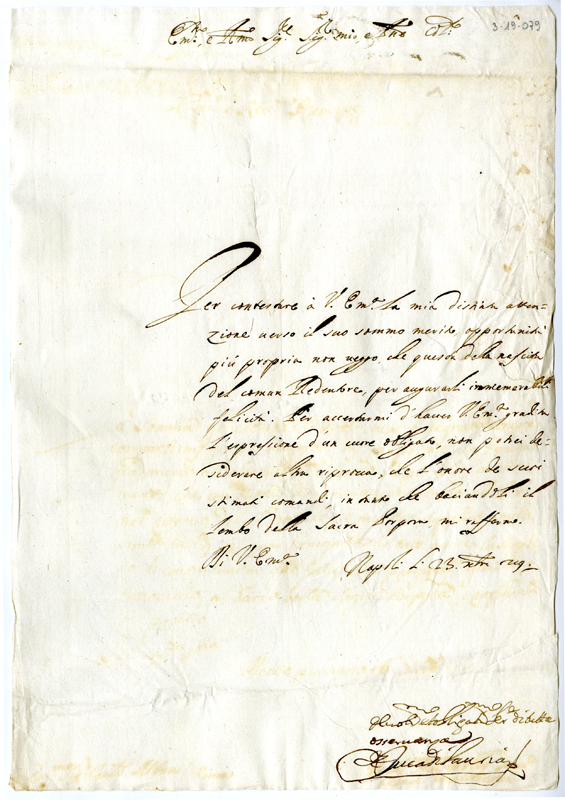 3-19-079
Em.mo e R.mo Sig.r Sig.r mio, e P.ne Col.mo
Per contestare à V. Em.a la mia distinta atten=
zione verso il suo sommo merito opportunità
più propria non veggo, che questa della nascita
del comun Redentore, per augurarli immemorabili
felicità. Per accertarmi d'haver V. Em.a gradita
l'espressione d'un cuore obligato, non potrei de=
siderare altra riprova, che l'onore de suoi
stimati comandi, intanto che baciandoli il
lembo della Sacra Porpora, mi raffermo.
Di V. Em.a
Napoli li 23. 9bre 719.
obligat.mo
osservanza